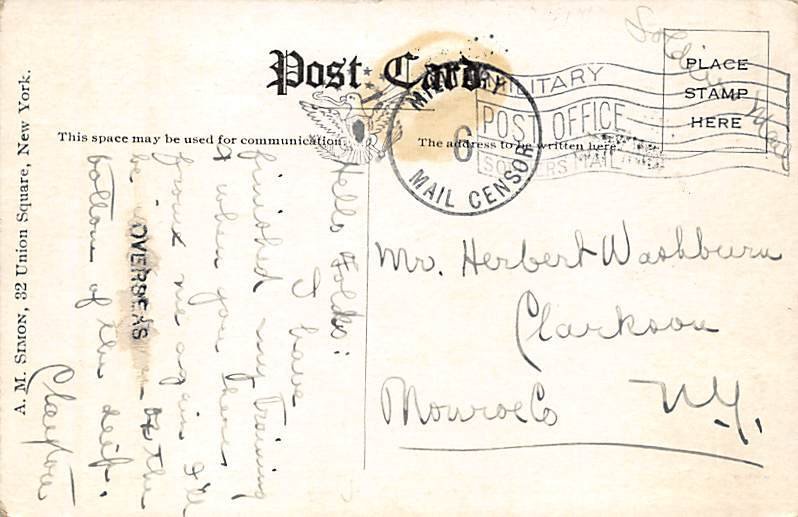 Post Card
PLACE
STAMP
HERE
Soldiers Mail
MILITARY
POST OFFICE
SOLDIERS MAIL
MILITARY
6
MAIL CENSOR
This space may be used for communication.
The address to be written here.
A. M. SIMON, 32 Union Square, New York.
Hello Folks:
I have
finished my training
& when you hear
from me again I'll
be
OVERSEAS
or the
bottom of the deep.
Clayton
Mr. Herbert Washburn
Clarkson
Monroe Co N.Y.